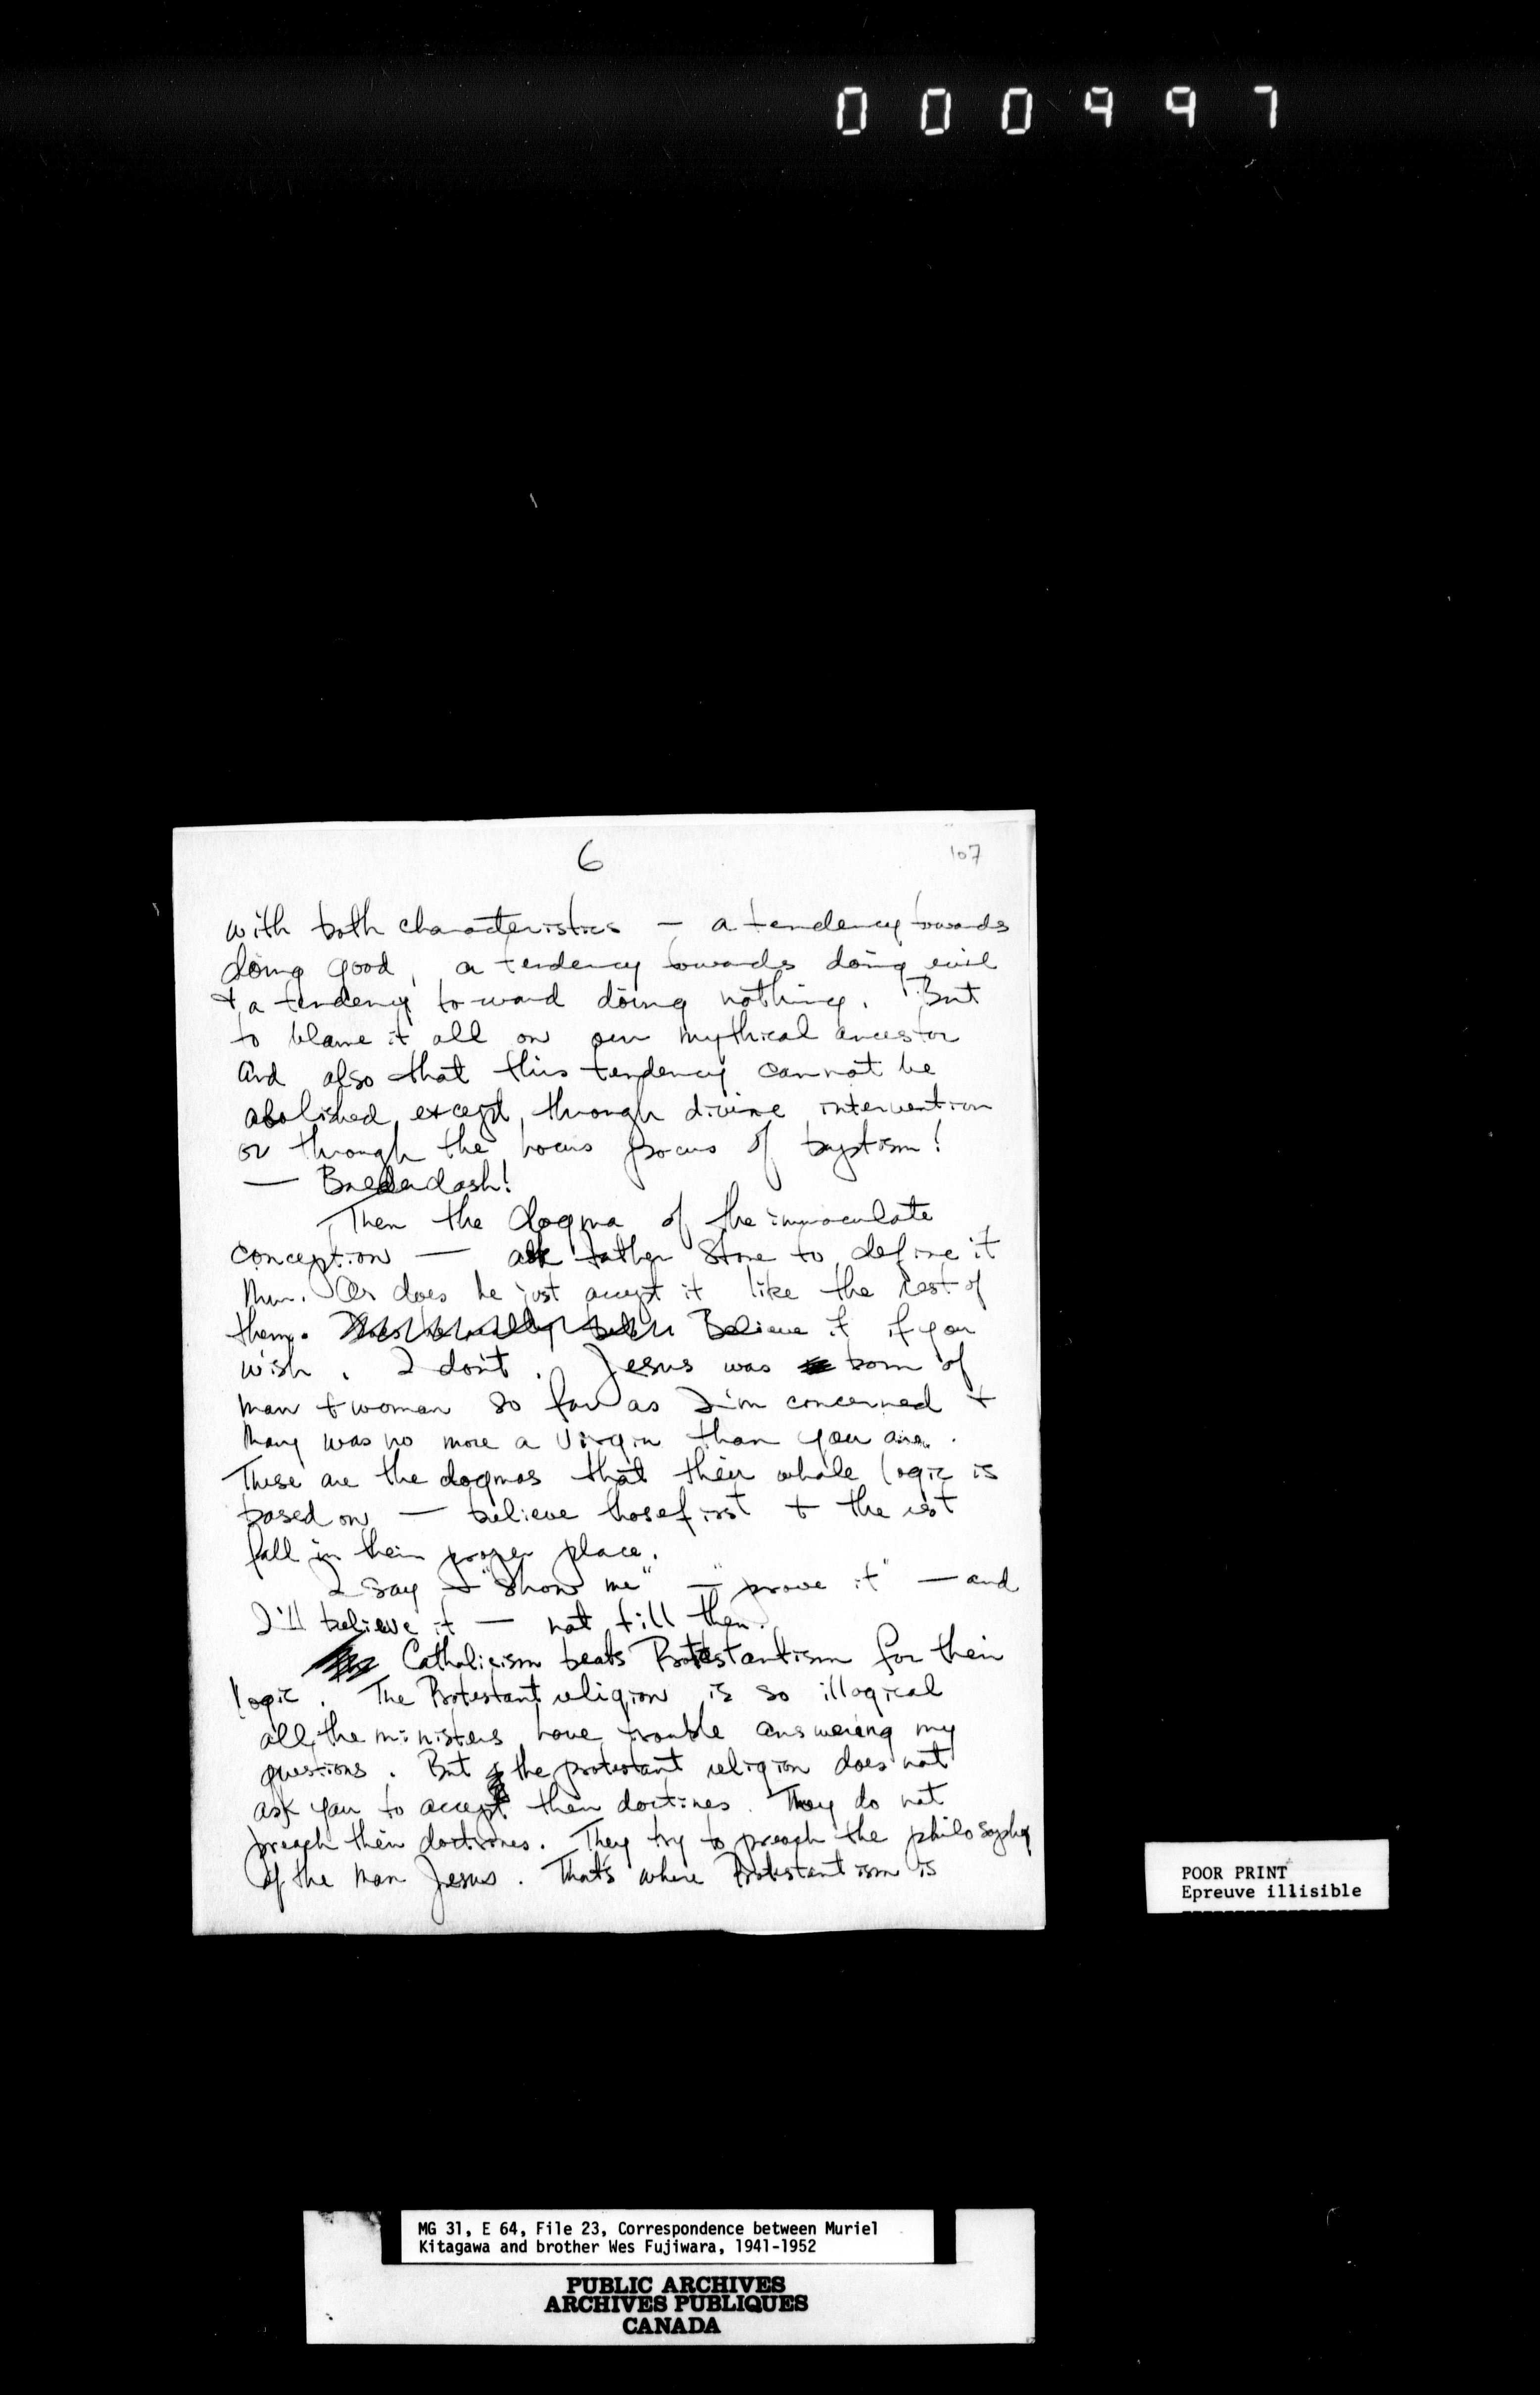 000997
6
107
with both characteristics — a tendency towards
doing good, a tendency towards doing evil
+ a tendency toward doing nothing. But
to blame it all on our mythical ancestor
and also that this tendency cannot be
abolished except through divine intervention
or through the hocus pocus of baptism!
— Balderdash!
Then the dogma of the immaculate
conception — ask Father Stone to define it
Mur. Or does he just accept it like the rest of
them. Believe it if you
wish. I don't. Jesus was born of
man + woman so far as I'm concerned +
Mary was no more a virgin than you are.
These are the dogmas that their whole logic is
based on — believe those first + the rest
fall in their proper place.
I say — "Show me" — "prove it" — and
I'll believe it — not till then.
Catholicism beats Protestantism for their
logic. The Protestant religion is so illogical
all the ministers have trouble answering my
questions. But the protestant religion does not
ask you to accept their doctines. They do not
preach their doctrines. They try to preach the philosophy
of the man Jesus. That's where Protestantism is
POOR PRINT
Epreuve illisible
MG 31, E 64, File 23, Correspondence between Muriel
Kitagawa and brother Wes Fujiwara, 1941-1952
PUBLIC ARCHIVES
ARCHIVES PUBLIQUES
CANADA